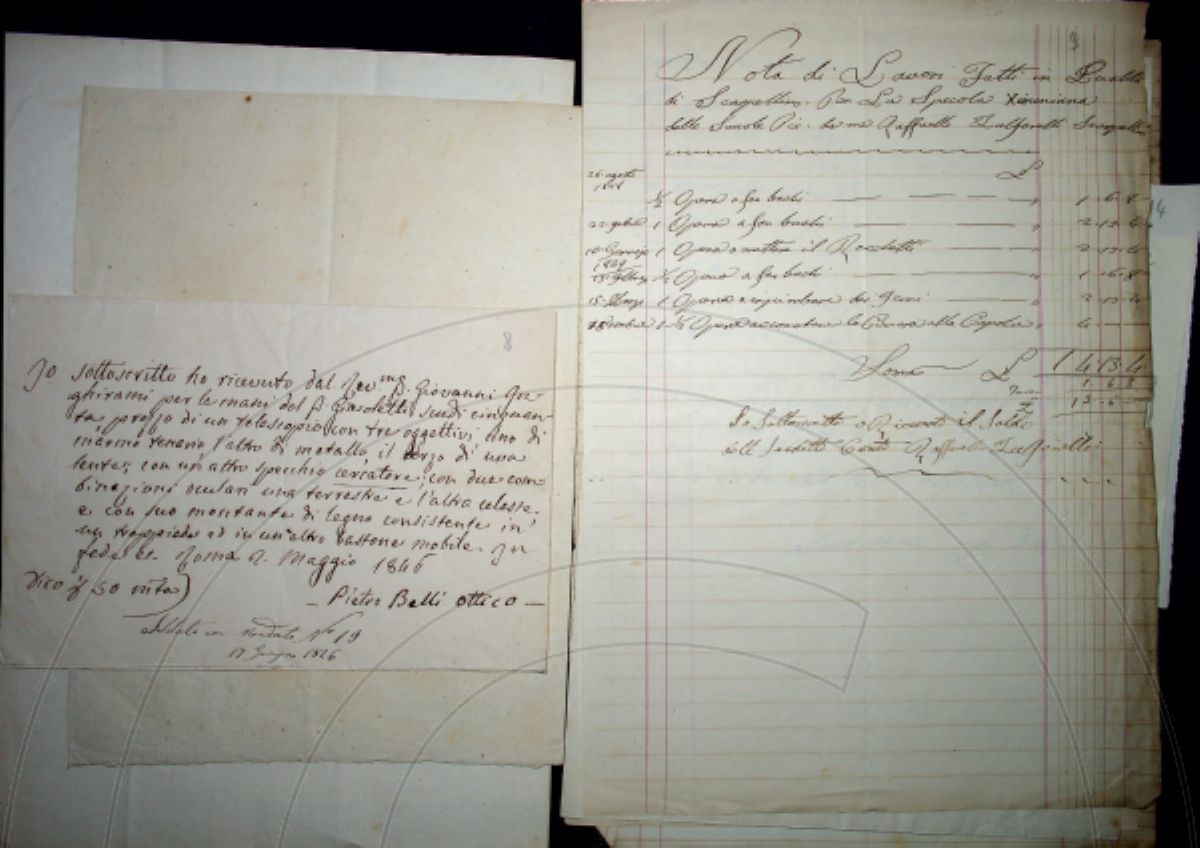 8
Io sottoscritto ho ricevuto dal Rev.mo P. Giovanni In=
ghirami per le mani del P. Giacoletti scudi cinquan=
ta, prezzo di un telescopio con tre oggettivi uno di
marmo tenario l'altro di metallo, il terzo di una
lente, con un altro specchio cercatore, con due com=
binazioni oculari una terrestre e l'altra celeste.
e con suo montante di legno consistente in
un treppiede ed in un altro bastone mobile. In
fede &c. Roma 2. Maggio 1846
Dico 50 moneta)
— Pietro Belli ottico —
Saldato con Mandato N.o 19
17 Giugno 1846
9
Nota di Lavori Fatti in Qualità
di Scarpellino. Per La Specola Ximeniana
delle Scuole Pie. da me Raffaello Zulfanelli Scarpellino
26 agosto
1848
£
½ Opera a far buchi 1 . 6 . 8
1 Opera a far buchi 2 . 13 . 4
10 Gennaio 1 Opera a mettere il Rocchetto 2 . 13 . 4
1849
½ Opera a far buchi 1 . 6 . 8
15 Marzo 1 Opera a 2 . 13 . 4
1 ½ Opera a la alla Cupola 4
Soma £ 14 . 13 . 4
1 . 6 . 8
13 . 6 . 8
Io Sottoscritto o Ricevuto il Saldo
del Suddetto Conto Raffaello Zulfanelli
14